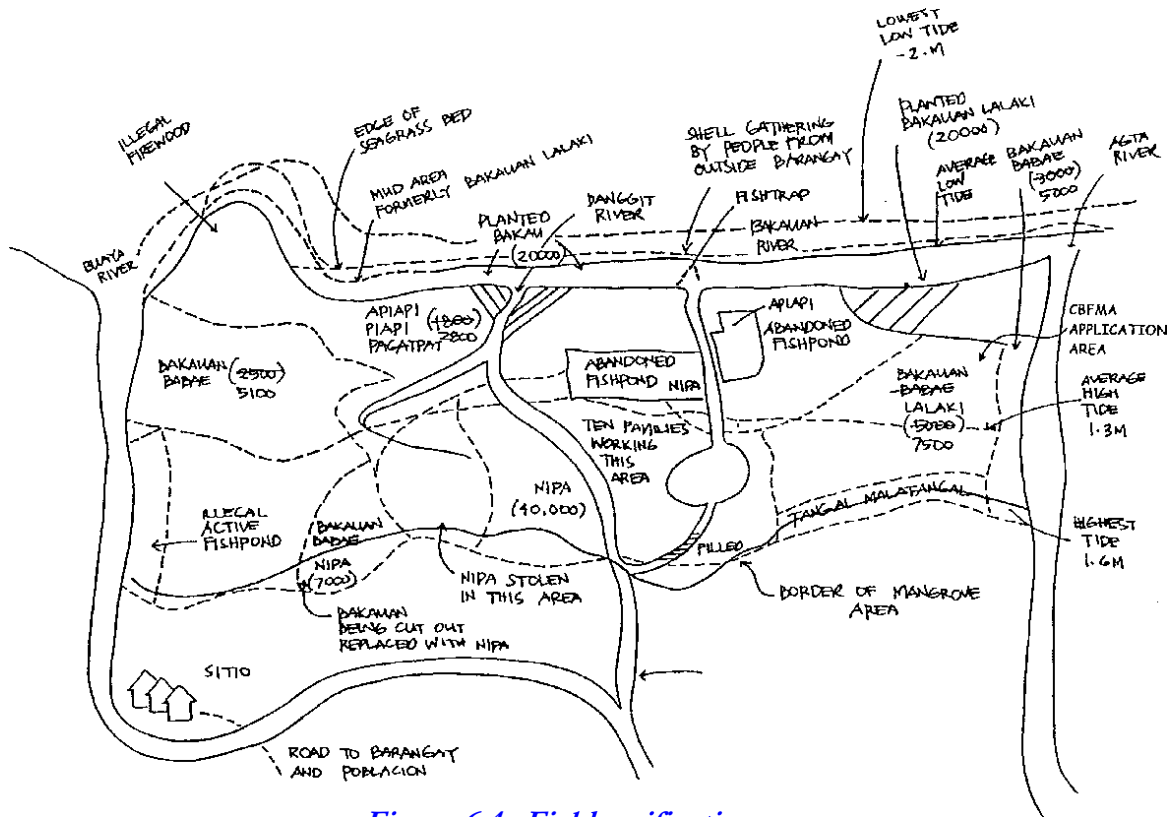 LOWEST
LOW TIDE
-2.M
ILLEGAL
FIREWOOD
EDGE OF
SEAGRASS BED
MUD AREA
FORMERLY BAKAUAN LALAKI
PLANTED
BAKAU
(20000)
DANGGIT
RIVER
SHELL GATHERING
BY PEOPLE FROM
OUTSIDE BARANGAY
FISHTRAP
BAKAUAN
RIVER
PLANTED
BAKAUAN LALAKI
(20000)
AVERAGE
LOW
TIDE
BAKAUAN
BABAE
(3000)
5000
AGTA
RIVER
BUAYA
RIVER
APIAPI
PIAPI
PAGATPAT
(4800)
2800
APIAPI
ABANDONED
FISHPOND
CBFMA
APPLICATION
AREA
BAKAUAN
BABAE
(2500)
5100
ABANDONED
FISHPOND
NIPA
BAKAUAN
BABAE
LALAKI
(5000)
7500
AVERAGE
HIGH
TIDE
1.3M
TEN FAMILIES
WORKING
THIS
AREA
ILLEGAL
ACTIVE
FISHPOND
BAKAUAN
BABAE
NIPA
(7000)
NIPA
(40,000)
TANGAL MALATANGAL
FILLED
HIGHEST
TIDE
1.6M
NIPA STOLEN
IN THIS AREA
BORDER OF MANGROVE
AREA
BAKAUAN
BEING CUT OUT
REPLACED WITH NIPA
SITIO
ROAD TO BARANGAY
AND POBLACION